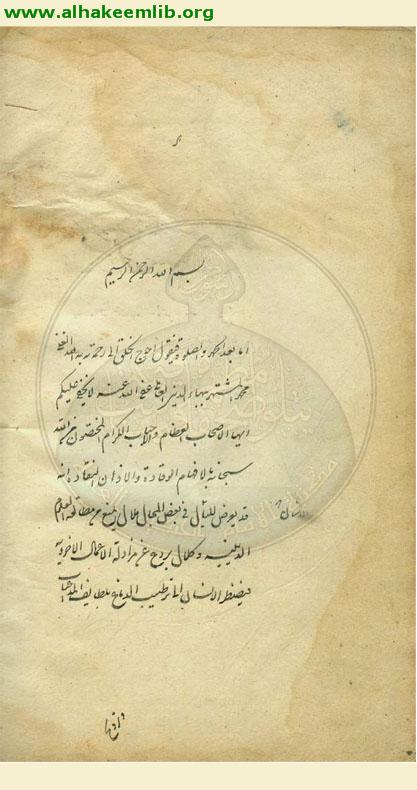 www.alhakeemlib.org
بسم الله الرحمن الرحيم
اما بعد الحمد والصلوة فيقول احوج الخلق الى رحمة ربه الغنى
محمد المشتهر ببهاء الدين العاملى عفى الله عنه لا يخفى عليكم
ايها الاصحاب العظام والاحباب الكرام المختصون من الله
سبحانه بالافهام الوقادة والاذهان النقادة انه
قد يعرض للبال فى بعض المجال ملال يمنع عن مطالعة العلوم
الدينية وكلال يردع عن مزاولة الاعمال الاخروية
فيضطر الانسان الى ترطيب الدماغ بلطايف